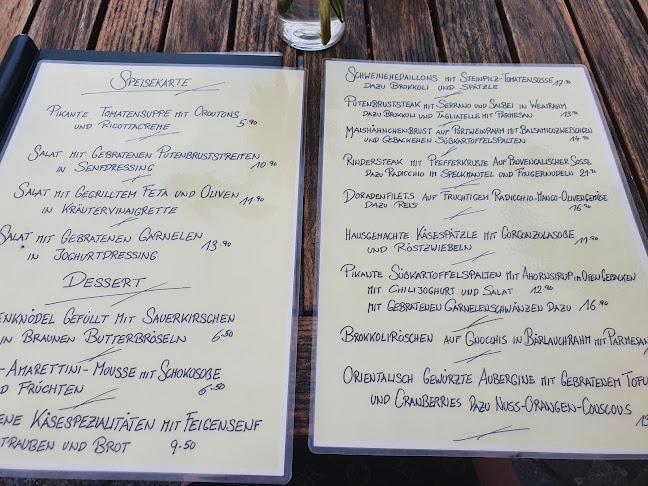 SPEISEKARTE
PIKANTE TOMATENSUPPE MIT CROUTONS
UND RICOTTACREME 5.90
SALAT MIT GEBRATENEN PUTENBRUSTSTREIFEN
IN SENFDRESSING 10.90
SALAT MIT GEGRILLTEM FETA UND OLIVEN
IN KRÄUTERVINAIGRETTE 11.90
SALAT MIT GEBRATENEN GARNELEN
IN JOGHURTDRESSING 13.90
DESSERT
ENKNÖDEL GEFÜLLT MIT SAUERKIRSCHEN
IN BRAUNEN BUTTERBRÖSELN 6.50
-AMARETTINI-MOUSSE MIT SCHOKOSOßE
D FRÜCHTEN 6.50
ENE KÄSESPEZIALITÄTEN MIT FEIGENSENF
TRAUBEN UND BROT 9.50
SCHWEINEMEDAILLONS MIT STEINPILZ-TOMATENSOSSE
DAZU BROKKOLI UND SPÄTZLE 12.90
PUTENBRUSTSTEAK MIT SERRANO UND SALBEI IN WEINRAHM
DAZU BROKKOLI UND TAGLIATELLE MIT PARMESAN 13.90
MAISHÄHNCHENBRUST AUF PORTWEINRAHM MIT BALSAMICOZWETSCHGEN
UND GEBACKENEN SÜßKARTOFFELSPALTEN 14.90
RINDERSTEAK MIT PFEFFERKRUSTE AUF PROVENCALISCHER SOSSE
DAZU RADICCHIO IM SPECKMANTEL UND FINGERNUDELN 21.90
DORADENFILETS AUF FRUCHTIGEM RADICCHIO-MANGO-OLIVENGEMÜSE
DAZU REIS 16.90
HAUSGEMACHTE KÄSESPÄTZLE MIT GORGONZOLASOßE
UND RÖSTZWIEBELN 11.90
PIKANTE SÜßKARTOFFELSPALTEN MIT AHORNSIRUP IM OFEN GEBACKEN
MIT CHILIJOGHURT UND SALAT 12.90
MIT GEBRATENEN GARNELENSCHWÄNZEN DAZU 16.90
BROKKOLIRÖSCHEN AUF GNOCCHIS IN BÄRLAUCHRAHM MIT PARMESAN
ORIENTALISCH GEWÜRZTE AUBERGINE MIT GEBRATENEM TOFU
UND CRANBERRIES DAZU NUSS-ORANGEN-COUSCOUS